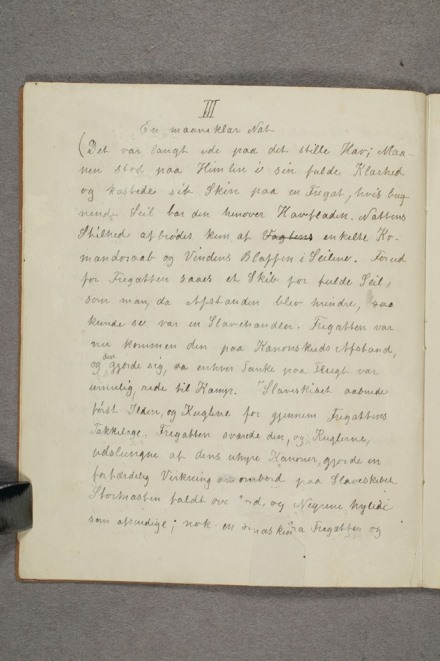 III
En maaneklar Nat
(Det var langt ude paa det stille Hav; Maa-
nen stod paa Himlen i sin fulde Klarhed
og kastede sit Skin paa en Fregat, hvis bug-
nende Seil bar den henover Havfladen. Nattens
Stilhed afbrødes kun af Vagtens enkelte Ko-
mandoraab og Vindens Blaffen i Seilene. Forud
for Fregatten saaes et Skib for fulde Seil,
som man, da Afstanden blev mindre, saa
kunde se var en Slavehandler. Fregatten var
nu kommen den paa Kanonskuds Afstand,
og den gjorde sig, da enhver Tanke paa Flugt var
umulig, rede til Kamp. Slaveskibet aabnede
først Ilden, og Kuglene for gjennem Fregattens
Takkelage. Fregatten svarede den, og Kuglerne,
udslungne af dens uhyre Kanoner, gjorde en
forfærdelig Virkning ombord paa Slaveskibet
Stormasten faldt og Negrene hylede
som afsindige; nok en fra Fregatten og